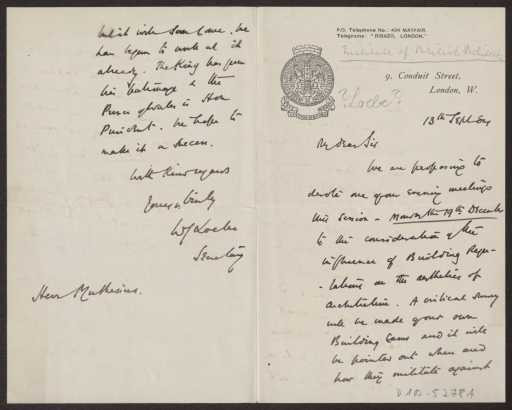 P.O. Telephone No.: 434 MAYFAIR.
Telegrams: "RIBAZO, LONDON."
Institute of British Architects
9, Conduit Street,
London, W.
?Locke?
13th Sept 09
My dear Sir
We are proposing to
devote one of our evening meetings
this Session - Monday the 19th December
to the consideration of the
influence of Building Regu-
-lations on the aesthetics of
Architecture. A critical survey
will be made of our own
Building Laws and it will
be pointed out when and
how they militate against
which will soon come. We
have begun to work at it
already. The King has given
his patronage & the
Prince of Wales is Hon
President. We hope to
make it a success.
With kind regards
Yours sincerely
Secretary
Herr Muthesius.